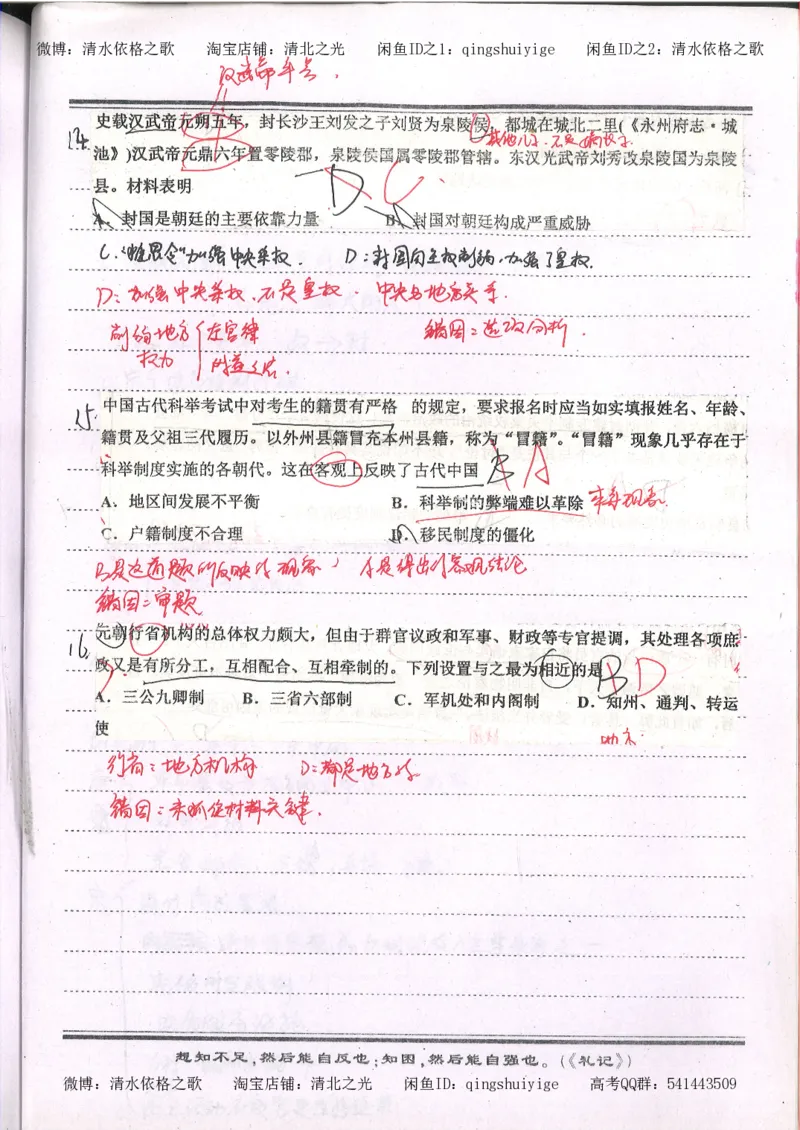 微博：清水依格之歌 淘宝店铺：清北之光 闲鱼ID之1：qingshuiyige 闲鱼ID之2：清水依格之歌
汉武帝年号.
24. 史载汉武帝元朔五年，封长沙王刘发之子刘贤为泉陵侯，都城在城北二里(《永州府志·城
其他儿子.不是嫡长子.
池》)汉武帝元鼎六年置零陵郡，泉陵侯国属零陵郡管辖。东汉光武帝刘秀改泉陵国为泉陵
县。材料表明 D C.
A、封国是朝廷的主要依靠力量 B、封国对朝廷构成严重威胁
C."推恩令"加强中央集权. D:封国向主权制约,加强了皇权.
D:加强中央集权.不是皇权. 中央与地方关系.
削弱地方 左官律 错因:选项分析.
权力 附益之法.
25. 中国古代科举考试中对考生的籍贯有严格 的规定，要求报名时应当如实填报姓名、年龄、
籍贯及父祖三代履历。以外州县籍冒充本州县籍，称为“冒籍”。“冒籍”现象几乎存在于
科举制度实施的各朝代。这在客观上反映了古代中国 B A
A．地区间发展不平衡 B．科举制的弊端难以革除
C．户籍制度不合理 D．移民制度的僵化
B是这道题所反映的现象, 不是得出的客观结论
错因:审题
26. 元朝行省机构的总体权力颇大，但由于群官议政和军事、财政等专官提调，其处理各项庶
政又是有所分工，互相配合、互相牵制的。下列设置与之最为相近的是 B D
A．三公九卿制 B．三省六部制 C．军机处和内阁制 D．知州、通判、转运
使 地方
行省:地方机构 D:都是地方的
错因:未抓住材料关键.
想知不足,然后能自反也;知困,然后能自强也。(《礼记》)
微博：清水依格之歌 淘宝店铺：清北之光 闲鱼ID：qingshuiyige 高考QQ群：541443509